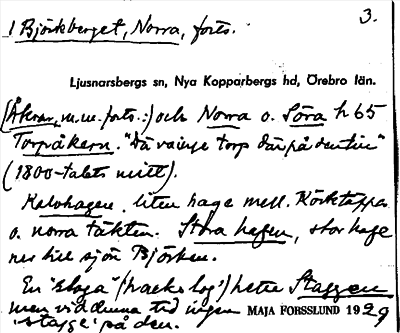 1 Björkberget, Norra, forts. 3.
Ljusnarsbergs sn, Nya Kopparbergs hd, Örebro län.
(Åkrar, m.m. forts.:) och Norra o. Söra h 65
Torpåkern. "Dä va inje torp där på den tin"
(1800-talets mitt).
Kalvhagen, liten hage mell. Körktäppa
o. norra täkten. Stora hagen, stor hage
ner till sjön Björken.
En "sloga" ("hackslog") hette Staggen
men vid denna tid ingen MAJA FORSSLUND 1929
"stagge" på den.